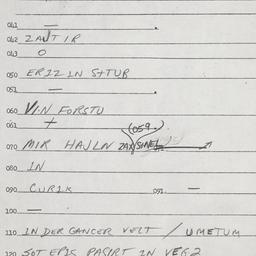 041 —
042 ZAJT IR
043 O
050 ERIZ IN STTUB
051 —
060 VIN FORSTU
061 +
(059.)
070 MIR HAJLN
080 IN
090 CURIK 091. —
100 —
110 IN DER GANCER VELT / UMETUM
120 SOT EPIS PASIRT IN VEG 2